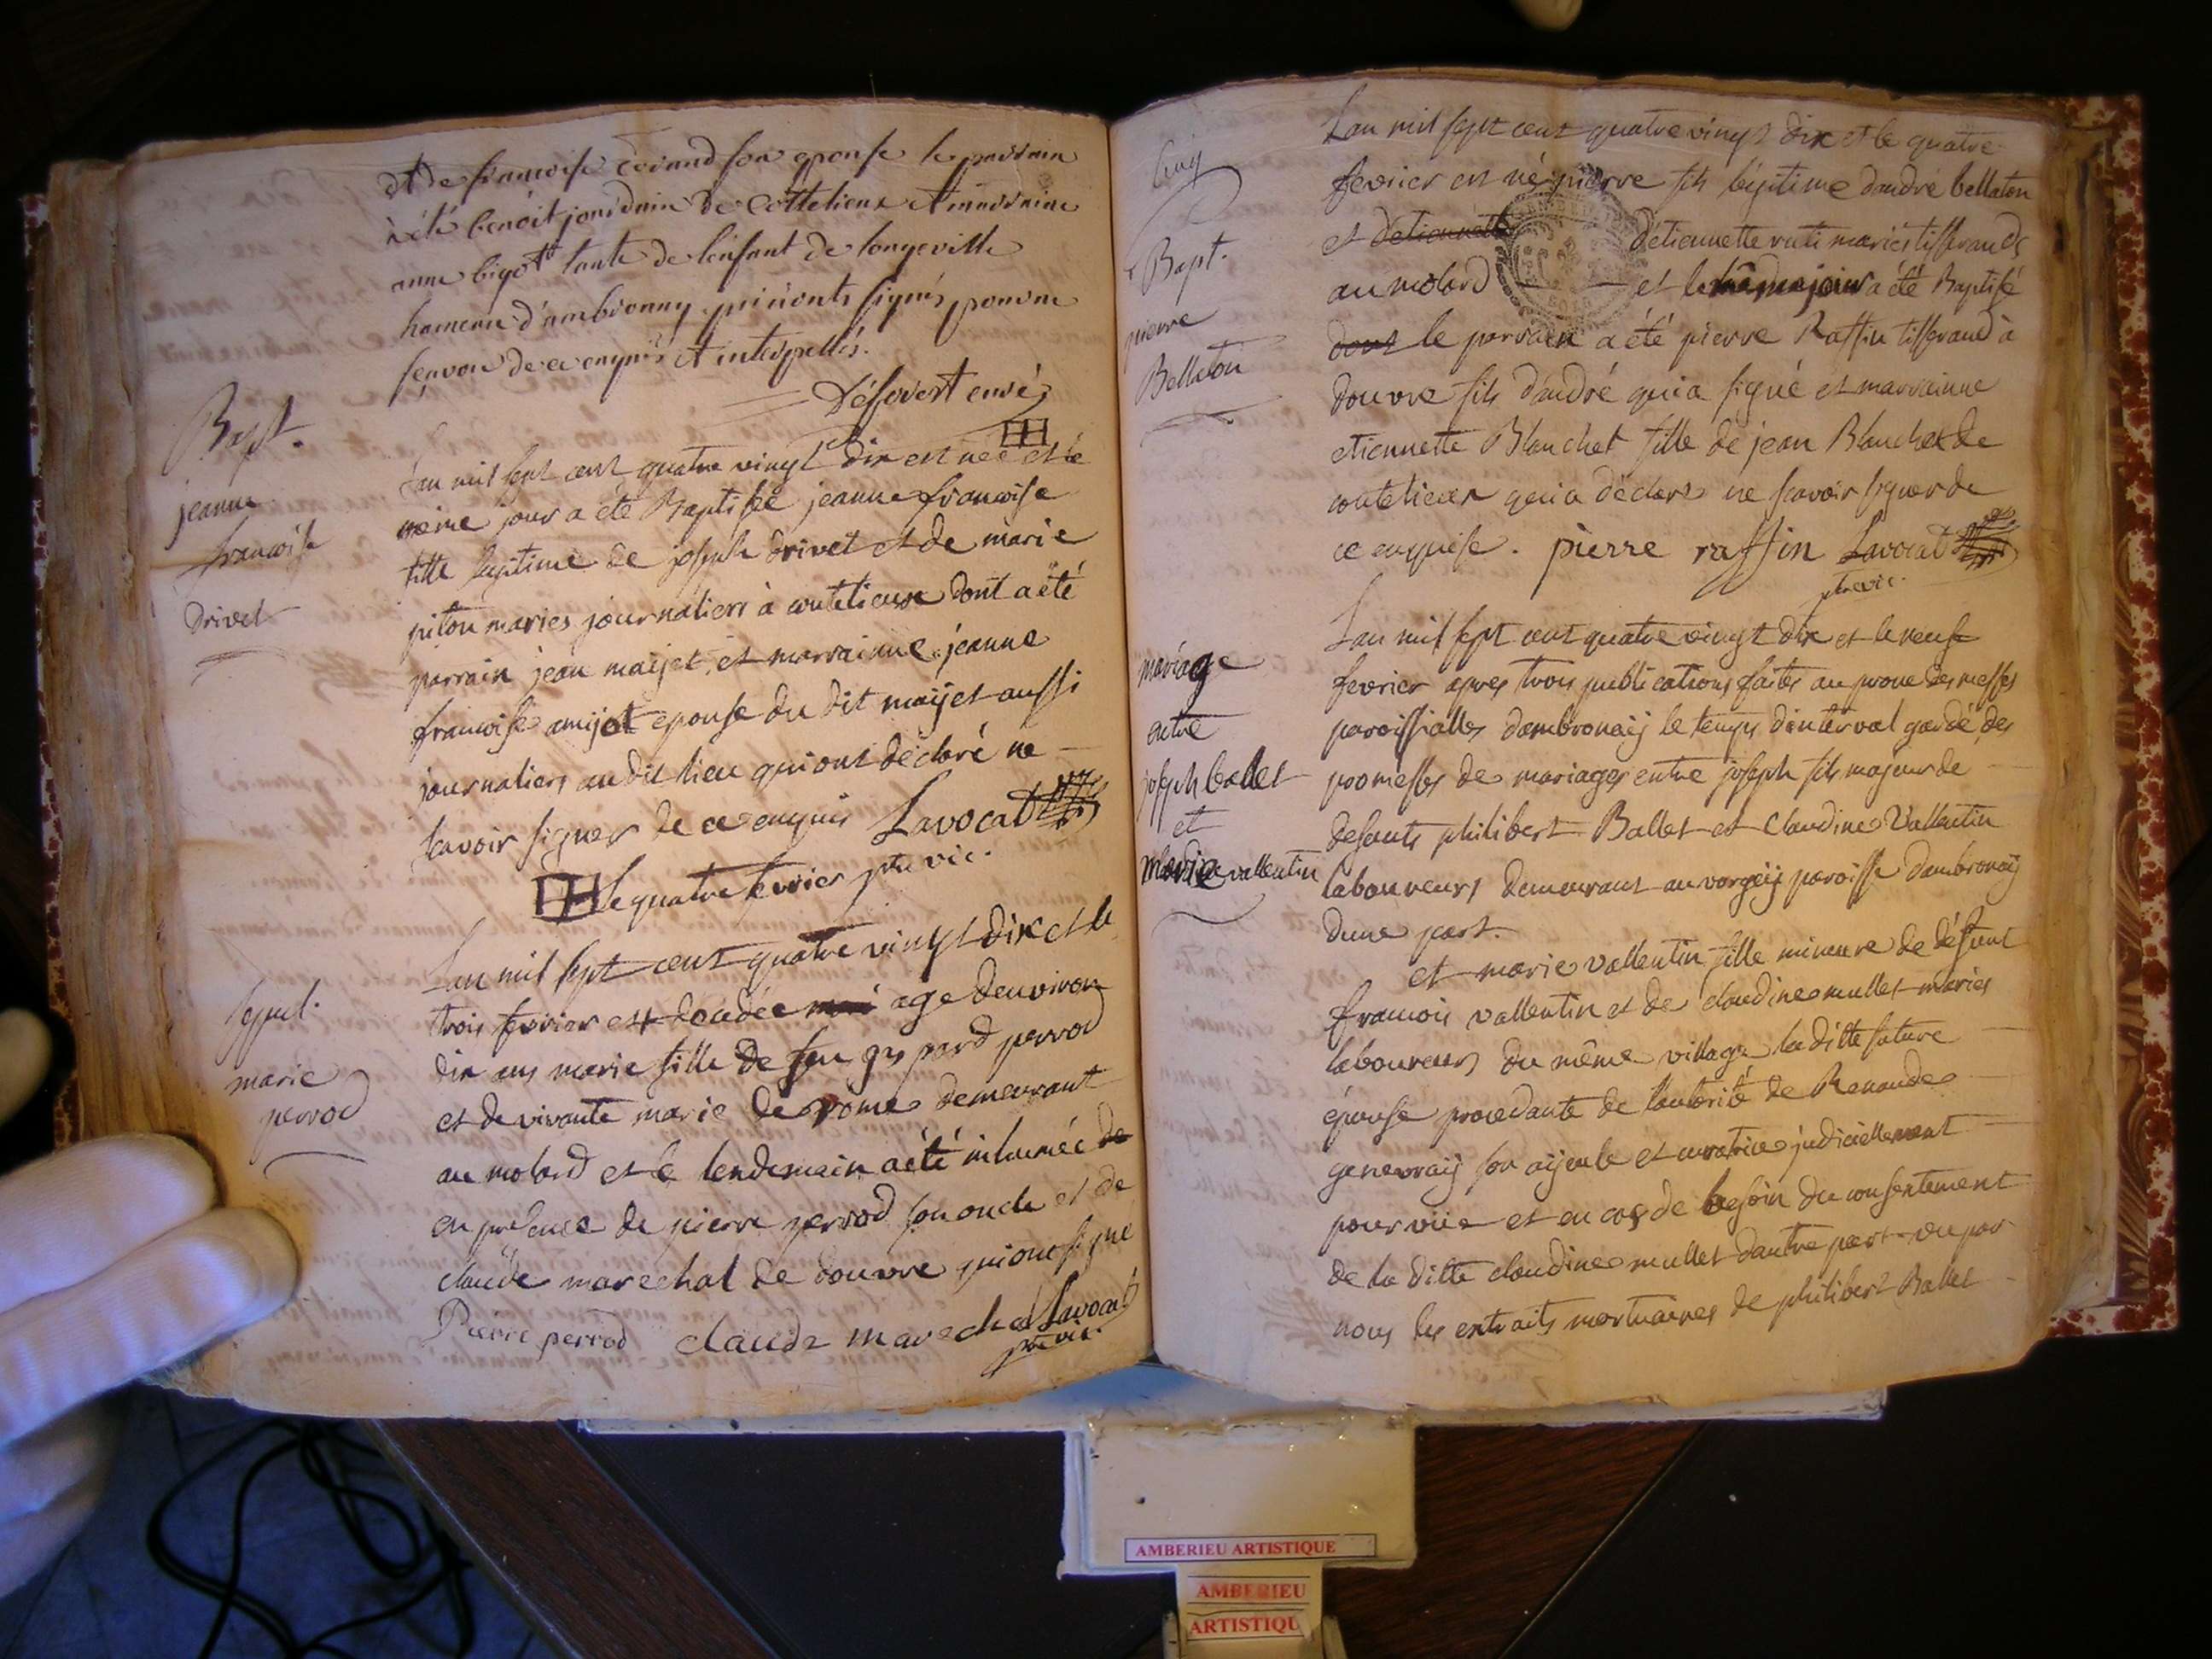 et de francoise Coirand son epouse le parrain
a été benoit jourdain de Cottelieux et marraine
anne bigot tante de l'enfant de longeville
hameau d'ambronay. peres non signés pour ne
scavoir de ce enquis et interpellés.
Déservert curé
Bapt.
jeanne
francoise
drivet
L'an mil sept cent quatre vingt dix est née et le
même jour a été Baptisée jeanne francoise
fille legitime de joseph drivet et de marie
piton mariés journaliers à coutelieux dont a été
parrain jean maijet et marrainne jeanne
francoise amijot epouse du dit maijet aussi
journaliers au dit lieu qui ont déclaré ne
scavoir signer de ce enquis Lavocat
le quatre fevrier ptre vic.
sepul.
marie
perrod
L'an mil sept cent quatre vingt dix et le
trois fevrier est decedée age d'environ
dix ans marie fille de feu gaspard perrod
et de vivante marie derome demeurant
au molard et le lendemain a été inhumée de
en presence de pierre perrod son oncle et de
claude marechal de douvre qui ont signé
Pierre perrod claude marechal Lavocat
ptre vic.
Bapt.
pierre
Bellaton
L'an mil sept cent quatre vingt dix et le quatre
fevrier est né pierre fils légitime d'andré bellaton
et d'etiennette d'etiennette ruti mariés tisserands
au molard et le même jour a été Baptisé
dont le parrain a été pierre Raffin tisserand à
douvre fils d'andré qui a signé et marrainne
etiennette Blanchet fille de jean Blanchet de
coutelieux qui a déclaré ne scavoir signer de
ce enquise. pierre raffin Lavocat
ptre vic.
mariage
entre
joseph ballet
et
marie vallentin
L'an mil sept cent quatre vingt dix et le neuf
fevrier apres trois publications faites au prone des messes
paroissialles d'ambronaij le temps d'interval gardé, des
promesses de mariages entre joseph fils majeur de
defunts philibert Ballet et Claudine Vallentin
laboureurs demeurant au vorgeij paroisse d'ambronaij
d'une part.
et marie vallentin fille mineure de défunt
francois vallentin et de claudine mullet mariés
laboureurs du même village la ditte future
épouse procedante de l'autorité de Renaude
genevraij son aijeule et curatrice judiciellement
pourvue et en cas de besoin du consentement
de la ditte claudine mullet d'autre part vu par
nous les extraits mortuaires de philibert Ballet
AMBERIEU ARTISTIQUE
AMBERIEU
ARTISTIQU